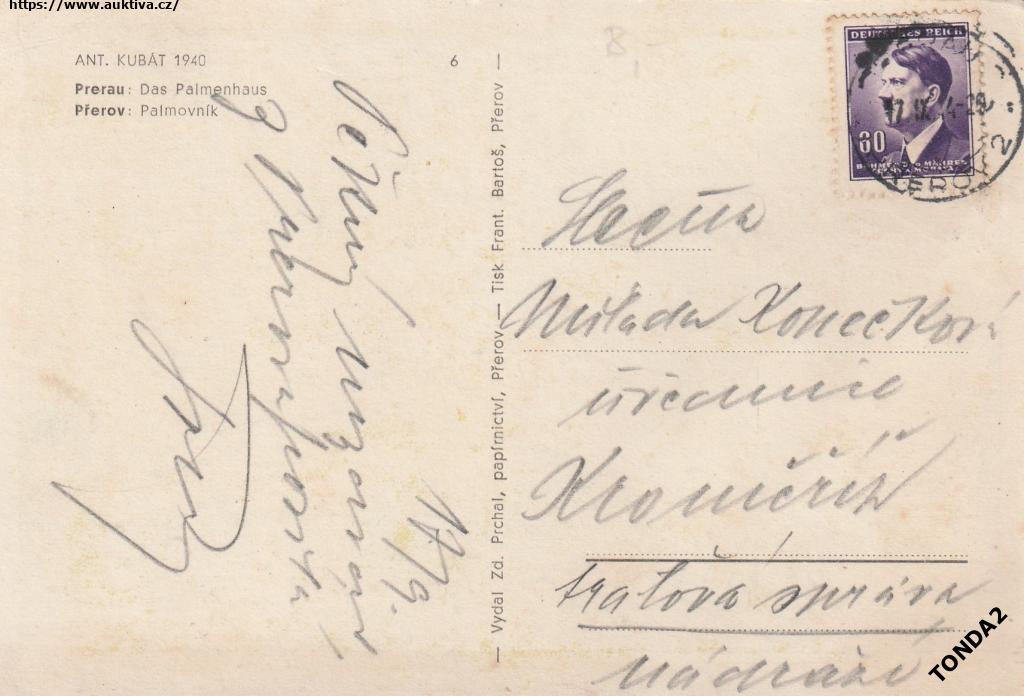 https://www.auktiva.cz/
ANT. KUBÁT 1940 6
Prerau: Das Palmenhaus
Přerov: Palmovník
Vydal Zd. Prchal, papírnictví, Přerov — Tisk. Frant. Bartoš, Přerov
DEUTSCHES REICH
60
BÖHMEN UND MÄHREN
17.IX.
2
Slečna
Milada Konečková
úřednice
Kroměříž
traťová správa
nádraží
17/9.
TONDA2